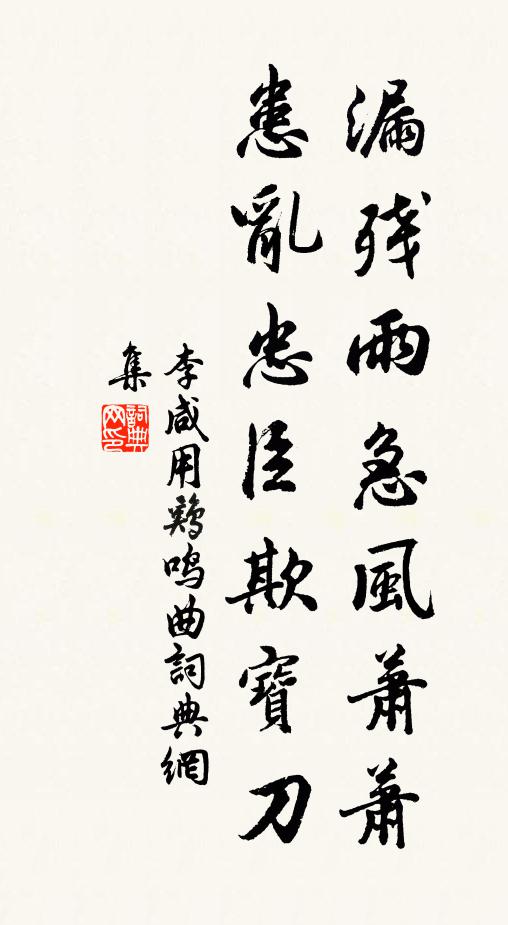 漏残雨急風蕭蕭
患亂忠臣欺寶刀
李咸用鷄鳴曲詞典網
集
詞典
网印